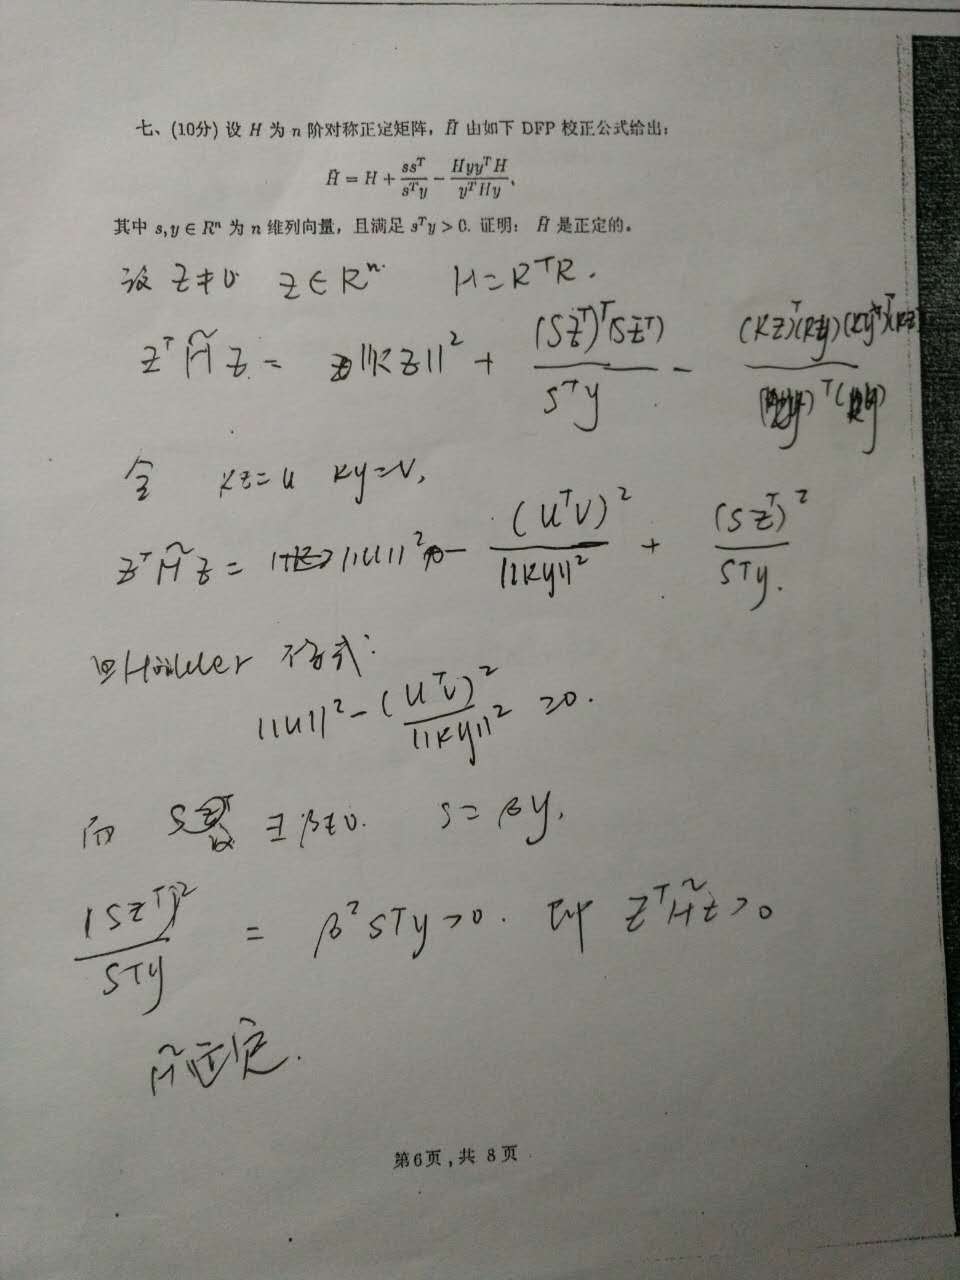 七、(10分) 设 H 为 n 阶对称正定矩阵，H̃ 由如下 DFP 校正公式给出：
H̃ = H + ss^T/s^Ty − Hyy^TH/y^THy,
其中 s, y ∈ R^n 为 n 维列向量，且满足 s^Ty > 0. 证明：H̃ 是正定的。
设 Z≠0 Z∈R^n. H=R^TR.
Z^T H̃ Z = ||RZ||^2 + (SZ^T)^T(SZ^T)/S^Ty −
令 RZ=U Ry=V,
Z^T H̃ Z = ||U||^2 − (U^TV)^2/||Ry||^2 + (SZ^T)^2/S^Ty.
不等式:
||U||^2 − (U^TV)^2/||Ry||^2 ≥0.
而 ∃ β≠0. S=βy,
(SZ^T)^2/S^Ty = β^2 S^Ty >0. 即 Z^T H̃ Z >0
H̃ 正定.
第 6 页 , 共 8 页